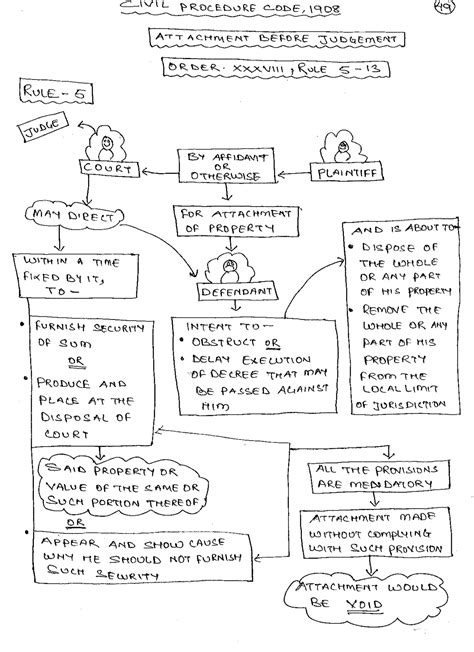 CIVIL PROCEDURE CODE, 1908
49
ATTACHMENT BEFORE JUDGEMENT
ORDER. XXXVIII, RULE 5-13
RULE-5
JUDGE
COURT
BY AFFIDAVIT
OR
OTHERWISE
PLAINTIFF
MAY DIRECT
FOR ATTACHMENT
OF PROPERTY
WITHIN A TIME
FIXED BY IT,
TO-
DEFENDANT
AND IS ABOUT TO-
• DISPOSE OF
THE WHOLE
OR ANY PART
OF HIS PROPERTY
• REMOVE THE
WHOLE OR ANY
PART OF HIS
PROPERTY
FROM THE
LOCAL LIMIT
OF JURISDICTION
• FURNISH SECURITY
OF SUM
OR
• PRODUCE AND
PLACE AT THE
DISPOSAL OF
COURT
INTENT TO-
• OBSTRUCT OR
• DELAY EXECUTION
OF DECREE THAT MAY
BE PASSED AGAINST
HIM
SAID PROPERTY OR
VALUE OF THE SAME OR
SUCH PORTION THEREOF
OR
• APPEAR AND SHOW CAUSE
WHY HE SHOULD NOT FURNISH
SUCH SECURITY
ALL THE PROVISIONS
ARE
ATTACHMENT MADE
WITHOUT COMPLYING
WITH SUCH PROVISION
ATTACHMENT WOULD
BE VOID